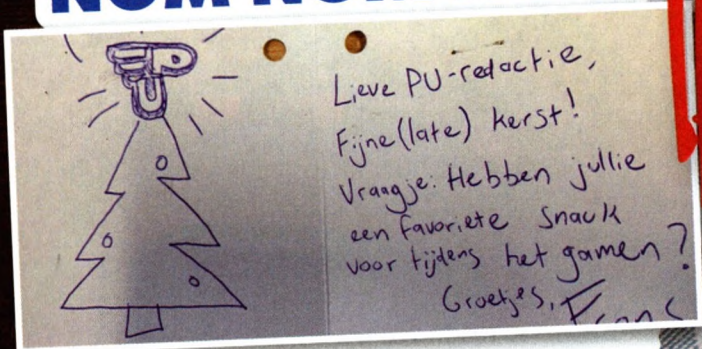 NOM NOM
PU
Lieve PU-redactie,
Fijne (late) kerst!
Vraagje: Hebben jullie
een favoriete snack
voor tijdens het gamen?
Groetjes, Frans